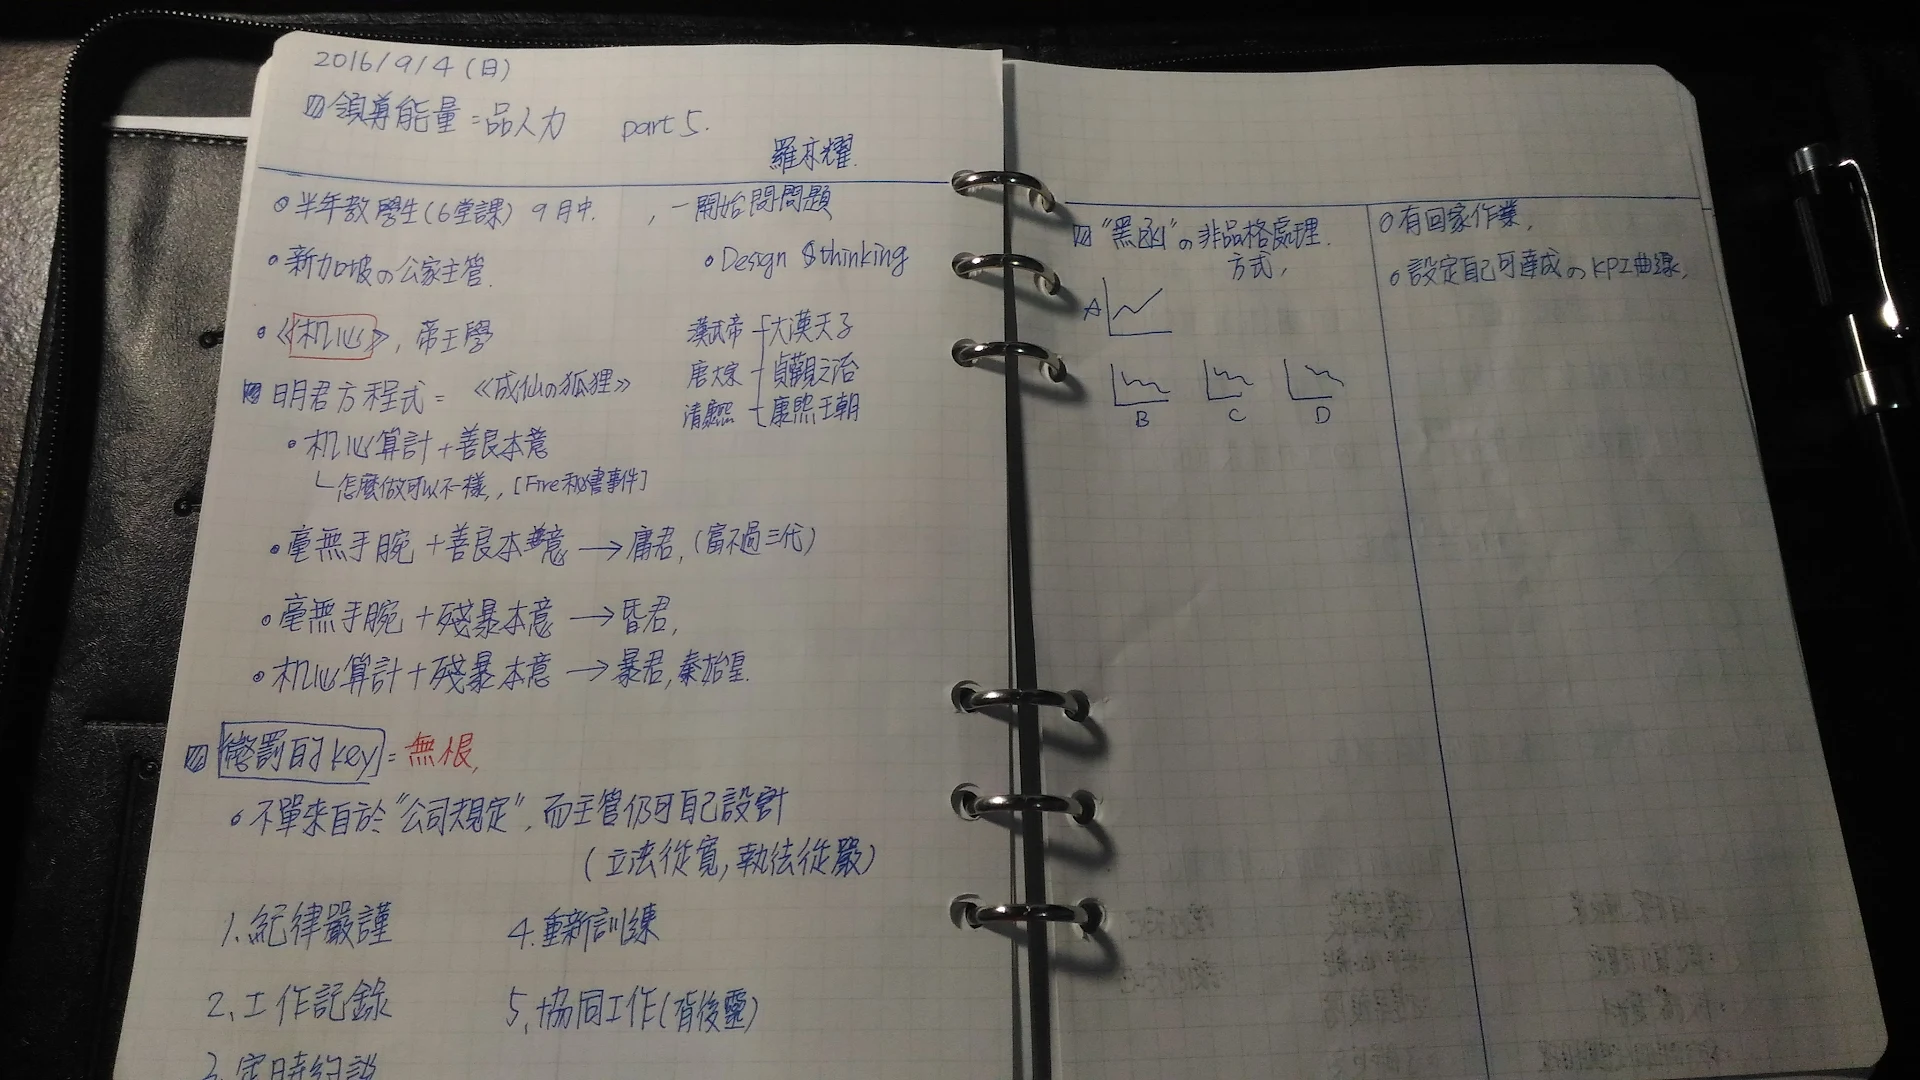 2016/9/4(日)
領導能量=品人力 part 5.
羅亦耀.
半年教學生(6堂課) 9月中.
，一開始問問題
新加坡の公家主管.
Design thinking
《机心》, 帝王學
漢武帝 大漢天子
唐太宗 貞觀之治
清康熙 康熙王朝
明君方程式= 《成仙の狐狸》
机心算計+善良本意
怎麼做可以不一樣, [Fire秘書事件]
毫無手腕+善良本意→庸君,(富不過三代)
毫無手腕+殘暴本意→昏君,
机心算計+殘暴本意→暴君,秦始皇.
懲罰的key=無恨,
不單來自於"公司規定",而主管仍可自己設計
(立法從寬,執法從嚴)
1.紀律嚴謹
2.工作記錄
3.定時約談
4.重新訓練
5.協同工作(背後靈)
"黑函"の非品格處理.
方式,
A
B C D
有回家作業,
設定自己可達成のKPI曲線,